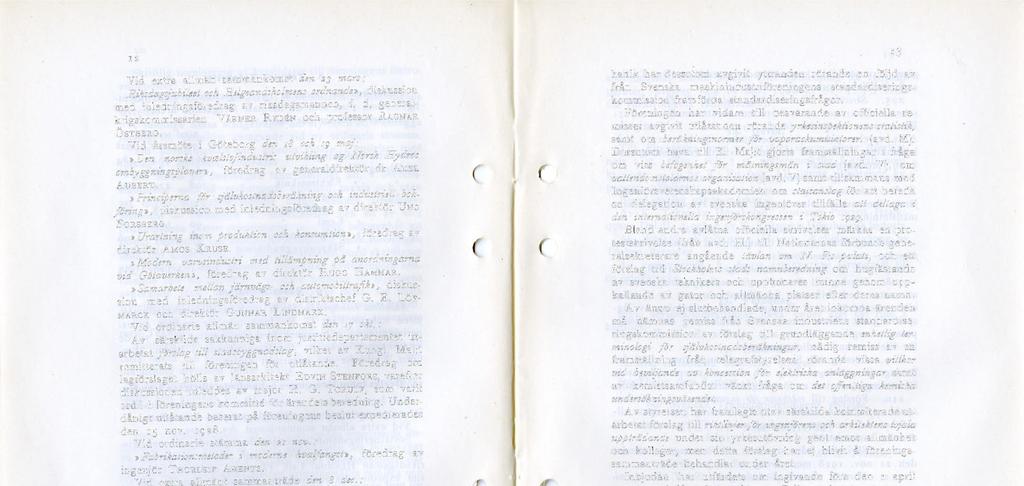 12
Vid extra allmän sammankomst den 23 mars:
Riksdagshuset och Helgeandsholmens ordnande», diskussion
med inledningsföredrag av
krigskommissarien VÄRNER RYDÉN och professor RAGNAR
ÖSTBERG.
Vid årsmöte i Göteborg den 18 och 19 maj:
»Den norske kvælstofindustris utvikling og Norsk Hydros
ombyggningsplaner», föredrag av generaldirektör
AUBERT.
»Principerna för självkostnadsberäkning och industriell bok-
föring», diskussion med inledningsföredrag av direktör UNO
FORSBERG.
inom produktion och konsumtion», föredrag av
direktör AMOS KRUSE.
»Modern varvsindustri med tillämpning på anordningarna
vid Götaverken», föredrag av direktör HUGO HAMMAR.
»Samarbete mellan järnvägs- och automobiltrafik», diskus-
sion med inledningsföredrag av distriktschef G. E. LÖV-
MARCK och direktör GUNNAR LINDMARK.
Vid ordinarie allmän sammankomst den 17 okt.:
Av särskilda sakkunniga inom justitiedepartementet ut-
arbetat förslag till stadsbyggnadslag, vilket av Kungl. Maj:t
remitterats till föreningen för utlåtande. Föredrag om
lagförslaget hölls av länsarkitekt EDVIN STENFORS, varefter
diskussionen inleddes av major H. G. TORULF, som varit
ordf. i föreningens kommitté för ärendets beredning. Under-
dånigt utlåtande baserat på föreningens beslut expedierades
den 15 nov. 1928.
Vid ordinarie stämma den 21 nov.:
»Fabrikationsmetoder i moderne hvalfangst», föredrag av
ingenjör THORLEIF ARENTZ.
Vid extra allmänt sammanträde den 8 dec.:
13
har dessutom avgivit yttranden rörande en följd av
från Svenska maskinindustriföreningens standardiserings-
kommission framförda standardiseringsfrågor.
Föreningen har vidare till besvarande av officiella re-
misser avgivit utlåtanden rörande yrkesinspektionens statistik,
samt om beräkningsnormer för vaporackumulatorer (avd. M).
Dessutom hava till K. Maj:t gjorts framställningar i fråga
om viss befogenhet för mätningsmän i stad (avd. V), om
vattendomstolarnas organisation (avd. V) samt tillsammans med
Ingenjörsvetenskapsakademien om statsanslag för att bereda
en delegation av svenska ingenjörer tillfälle att deltaga i
den internationella ingenjörskongressen i Tokio 1929.
Bland andra avlåtna officiella skrivelser märkas en pro-
testskrivelse (från avd. H) till Nationernas Förbunds gene-
ralsekreterare angående tävlan om N. F:s palats, och ett
förslag till Stockholms stads namnberedning om hugfästande
av svenska teknikers och uppfinnares minne genom upp-
kallande av gator och allmänna platser efter deras namn.
Av ännu ej slutbehandlade, under året inkomna ärenden
må nämnas remiss från Sveriges industriens standardise-
ringskommission av förslag till grundläggande enhetlig ter-
minologi för självkostnadsberäkningar, nådig remiss av en
framställning från telegrafstyrelsen rörande vissa villkor
vid beviljande av koncession för elektriska anläggningar samt
av kemistsamfundet väckt fråga om det offentliga kemiska
undersökningsväsendet.
Av styrelsen har framlagts utav särskilda kommitterade ut-
arbetat förslag till riktlinjer för ingenjörens och arkitektens lojala
uppträdande under sin yrkesutövning gent emot allmänhet
och kolleger, men detta förslag har ej blivit å förenings-
sammanträde behandlat under året.
Inbjudan har utfärdats om ingivande före den 1 april